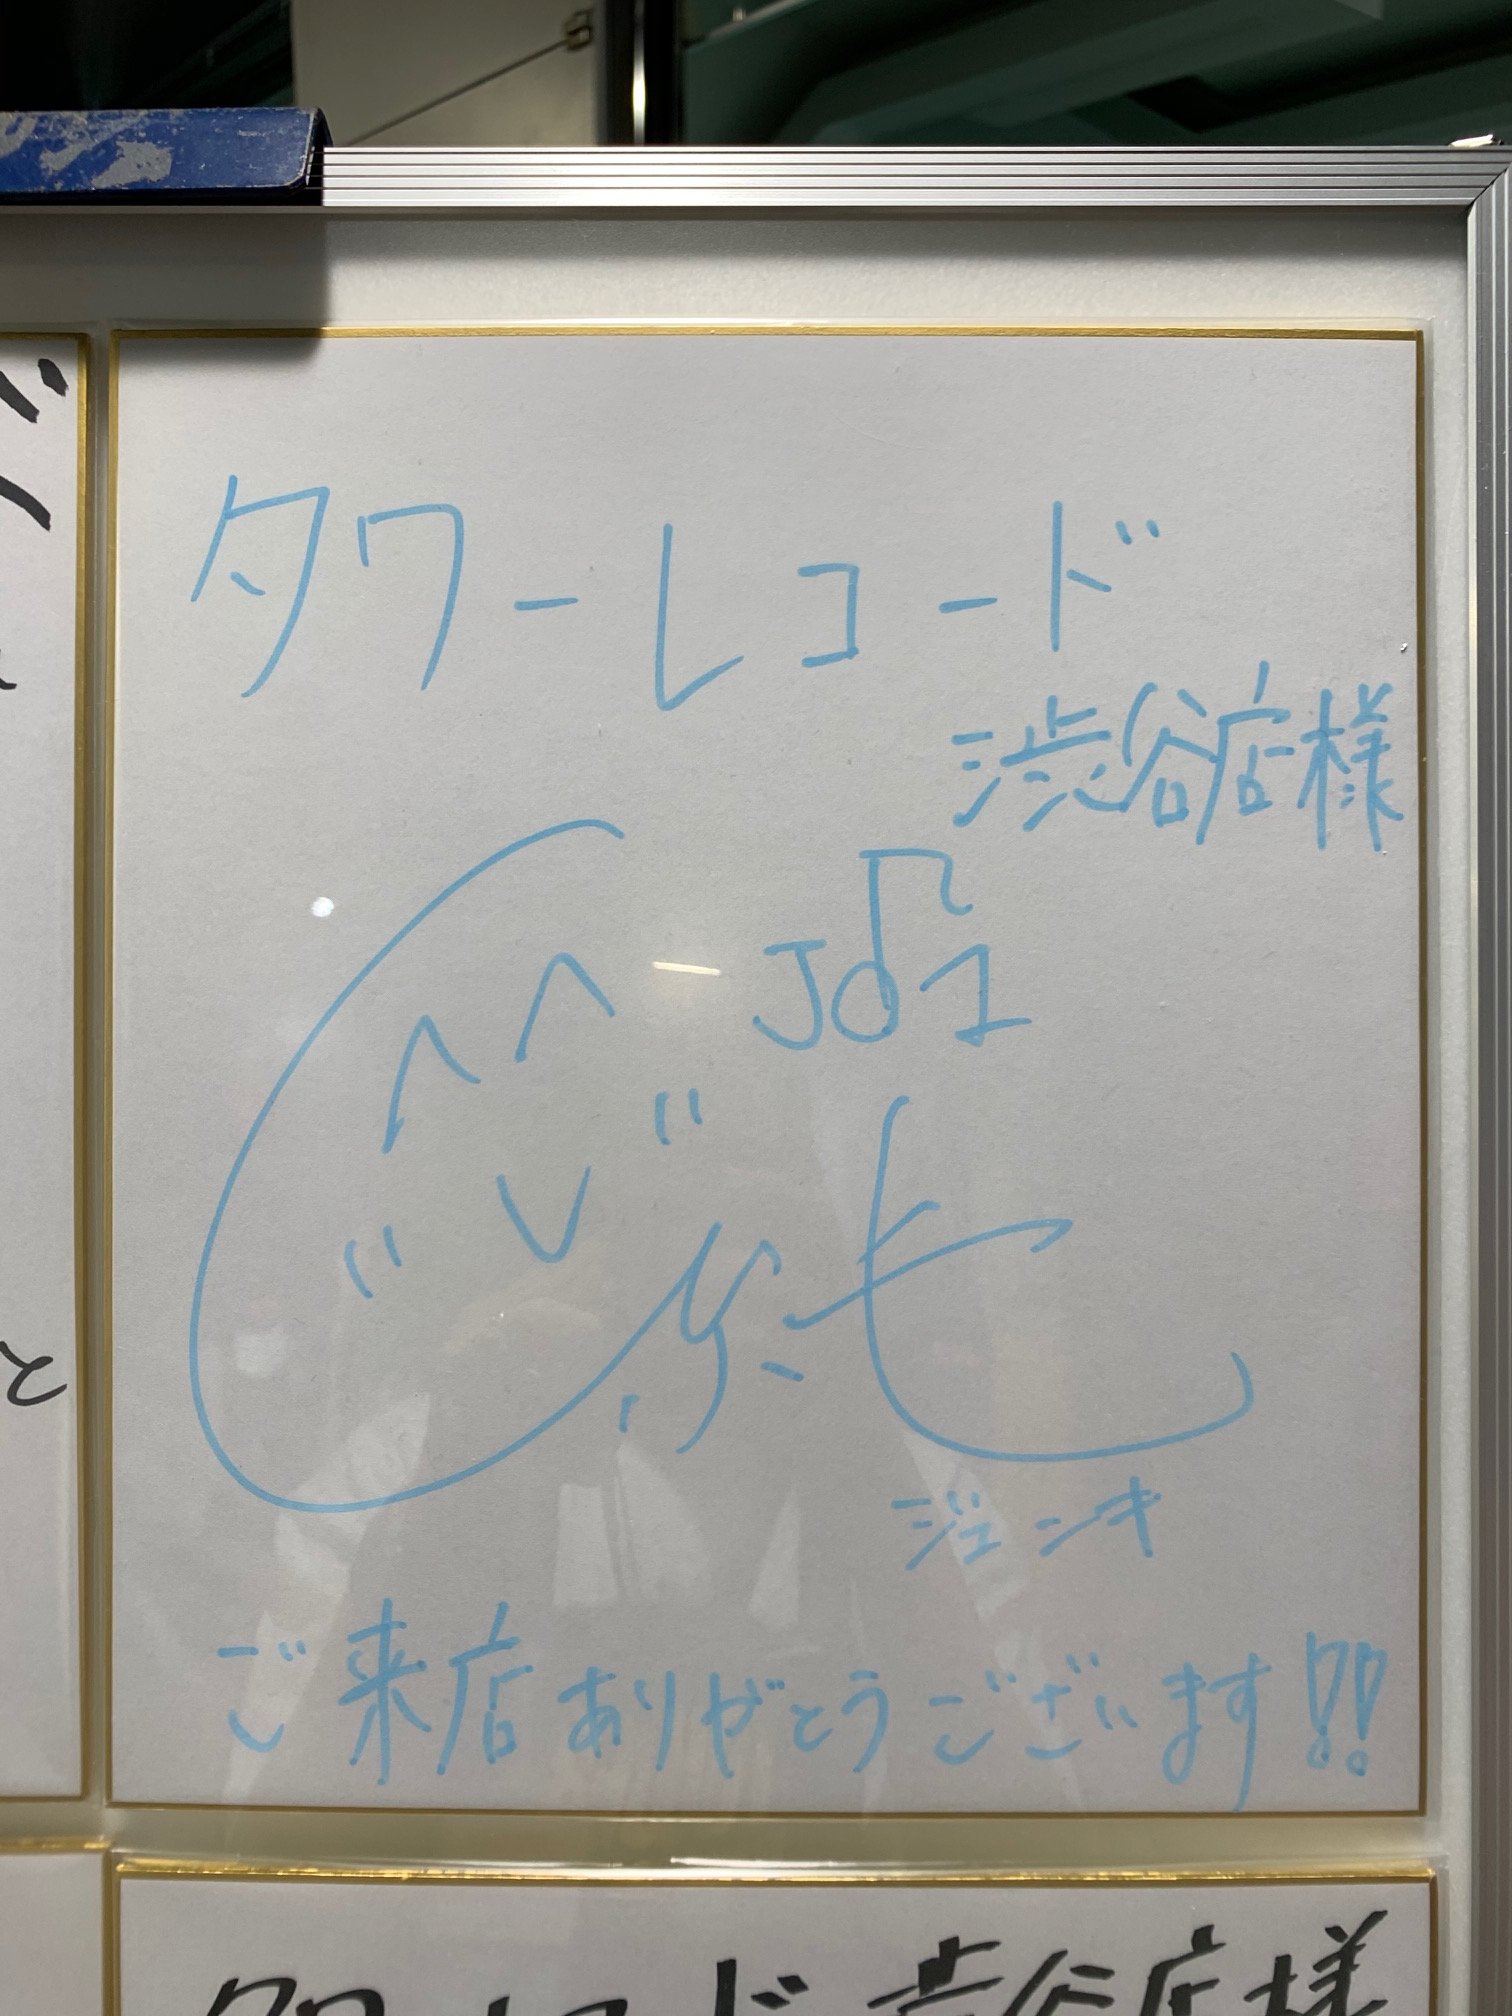 タワーレコード
渋谷店様
JO1
純七
ジュンキ
ご来店ありがとうございます!!
と
タワーレコード渋谷店様